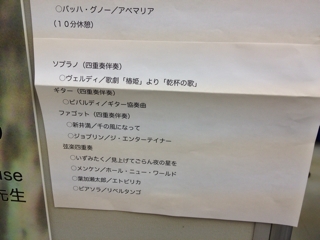 ○バッハ・グノー／アベマリア
（１０分休憩）
ソプラノ（四重奏伴奏）
○ヴェルディ／歌劇「椿姫」より「乾杯の歌」
ギター（四重奏伴奏）
○ビバルディ／ギター協奏曲
ファゴット（四重奏伴奏）
○新井満／千の風になって
○ジョプリン／ジ・エンターテイナー
弦楽四重奏
○いずみたく／見上げてごらん夜の星を
○メンケン／ホール・ニュー・ワールド
○葉加瀬太郎／エトピリカ
○ピアソラ／リベルタンゴ
use
先生